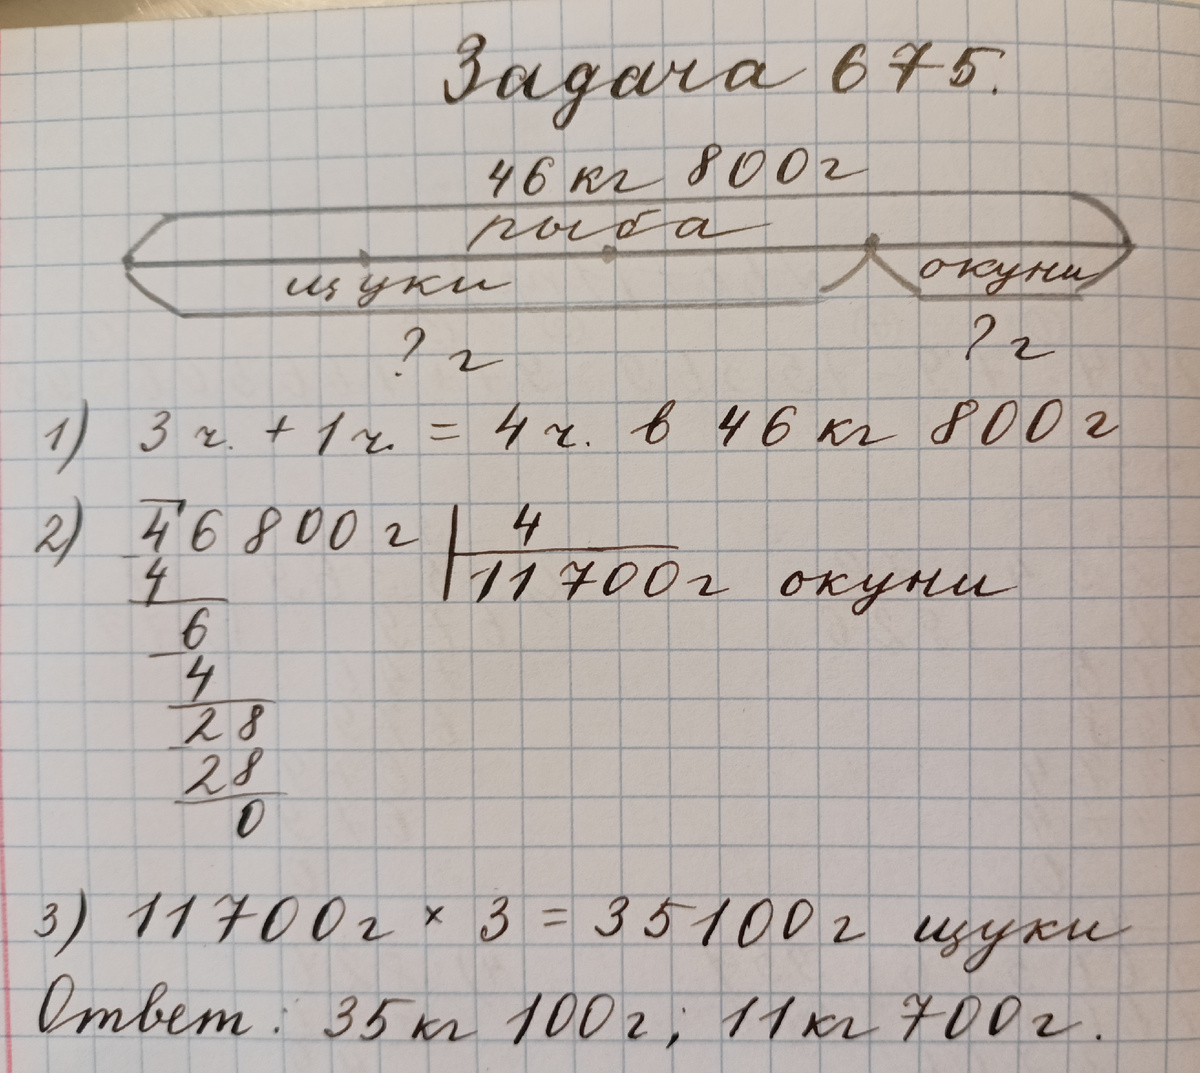 Задача 675.
46 кг 800 г
рыба
щуки окуни
? г ? г
1) 3 ч. + 1 ч. = 4 ч. в 46 кг 800 г
2) 46800 г | 4
4 11700 г окуни
6
4
28
28
0
3) 11700 г × 3 = 35100 г щуки
Ответ: 35 кг 100 г; 11 кг 700 г.